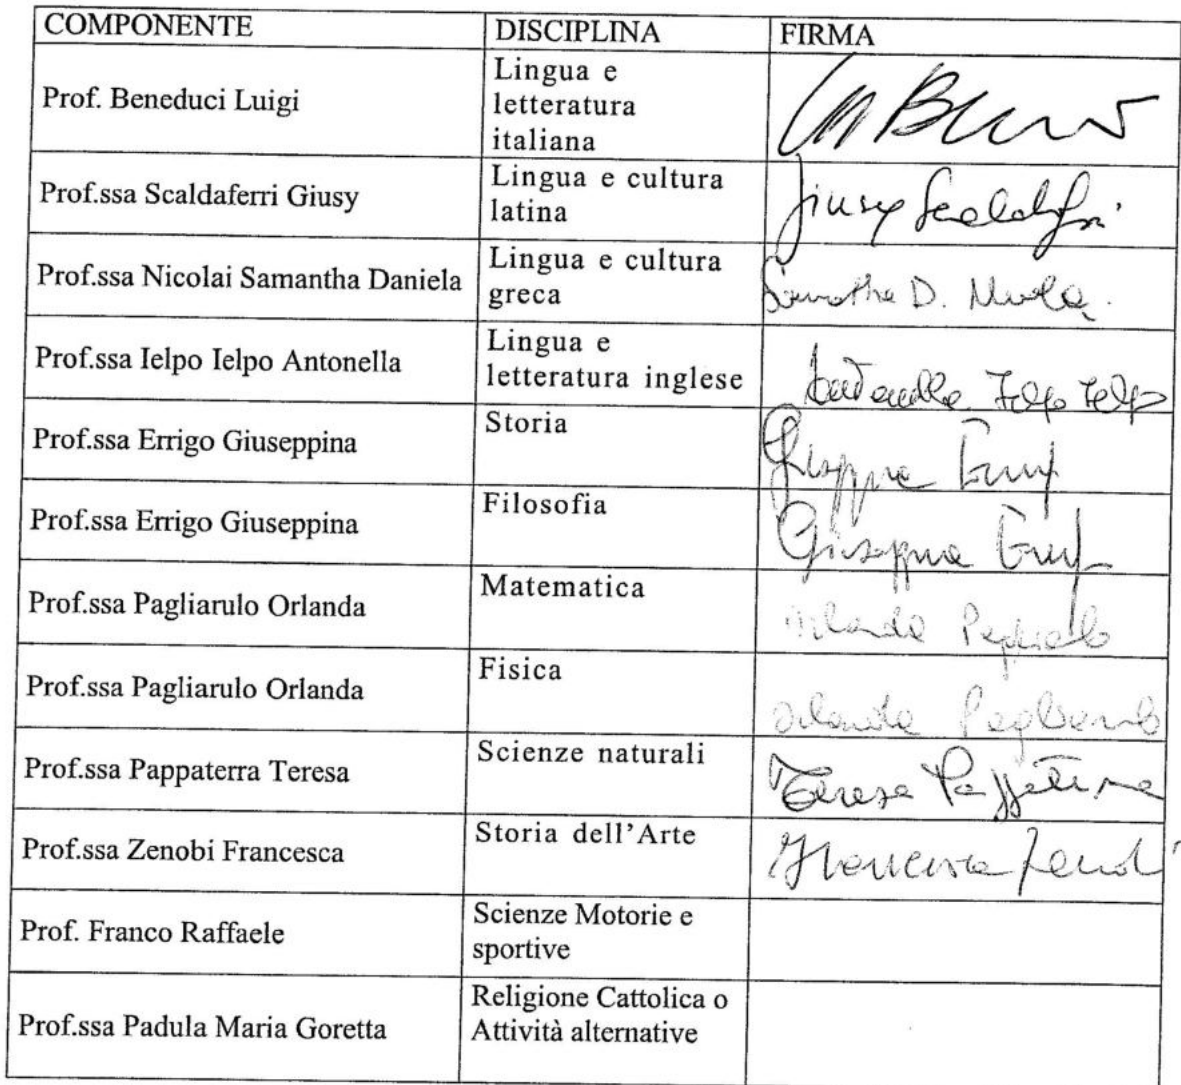 COMPONENTE DISCIPLINA FIRMA
Prof. Beneduci Luigi
Lingua e
letteratura
italiana
Prof.ssa Scaldaferri Giusy
Lingua e cultura
latina
Giusy Scaldaferri
Prof.ssa Nicolai Samantha Daniela
Lingua e cultura
greca
Samantha D. Nicolai
Prof.ssa Ielpo Ielpo Antonella
Lingua e
letteratura inglese
Antonella Ielpo Ielpo
Prof.ssa Errigo Giuseppina
Storia
Giuseppina Errigo
Prof.ssa Errigo Giuseppina
Filosofia
Giuseppina Errigo
Prof.ssa Pagliarulo Orlanda
Matematica
Orlanda Pagliarulo
Prof.ssa Pagliarulo Orlanda
Fisica
Orlanda Pagliarulo
Prof.ssa Pappaterra Teresa
Scienze naturali
Teresa Pappaterra
Prof.ssa Zenobi Francesca
Storia dell'Arte
Francesca Zenobi
Prof. Franco Raffaele
Scienze Motorie e
sportive
Prof.ssa Padula Maria Goretta
Religione Cattolica o
Attività alternative